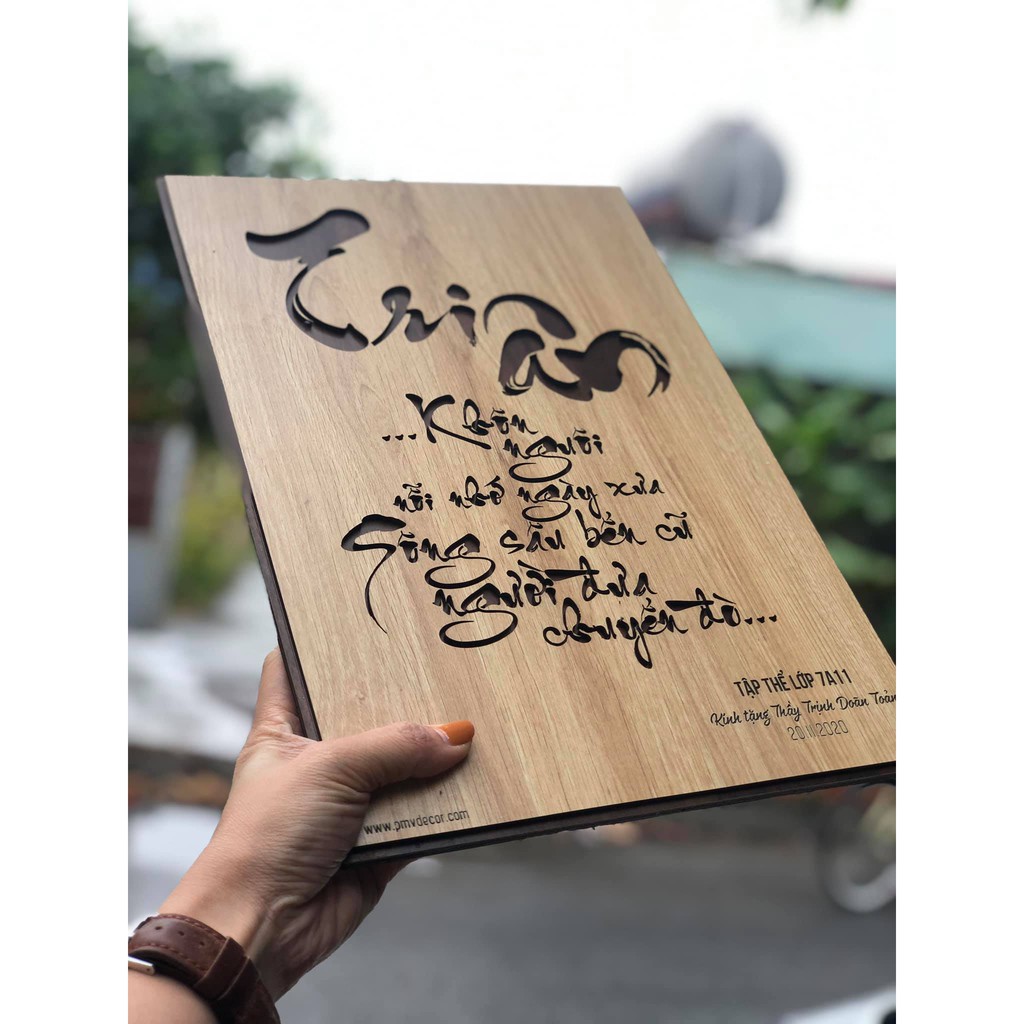 Tri ân
...Khôn
người
nỗi nhớ ngày xưa
Sông sâu bến cũ
người đưa
chuyến đò...
TẬP THỂ LỚP 7A11
Kính tặng Thầy Trịnh Doãn Toản
20.11.2020
www.pmvdecor.com